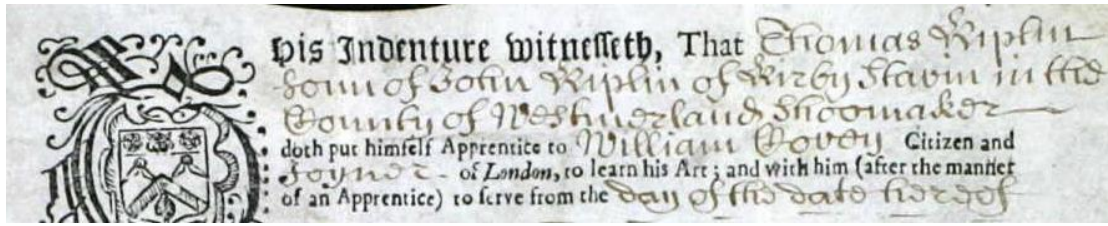 This Indenture witnesseth, That Thomas Riplin
Sonn of John Riplin of Kirby Stavin in the
County of Westmerland Shoomaker
doth put himself Apprentice to William Covey Citizen and
Joyner of London, to learn his Art; and with him (after the manner
of an Apprentice) to serve from the day of the date hereof